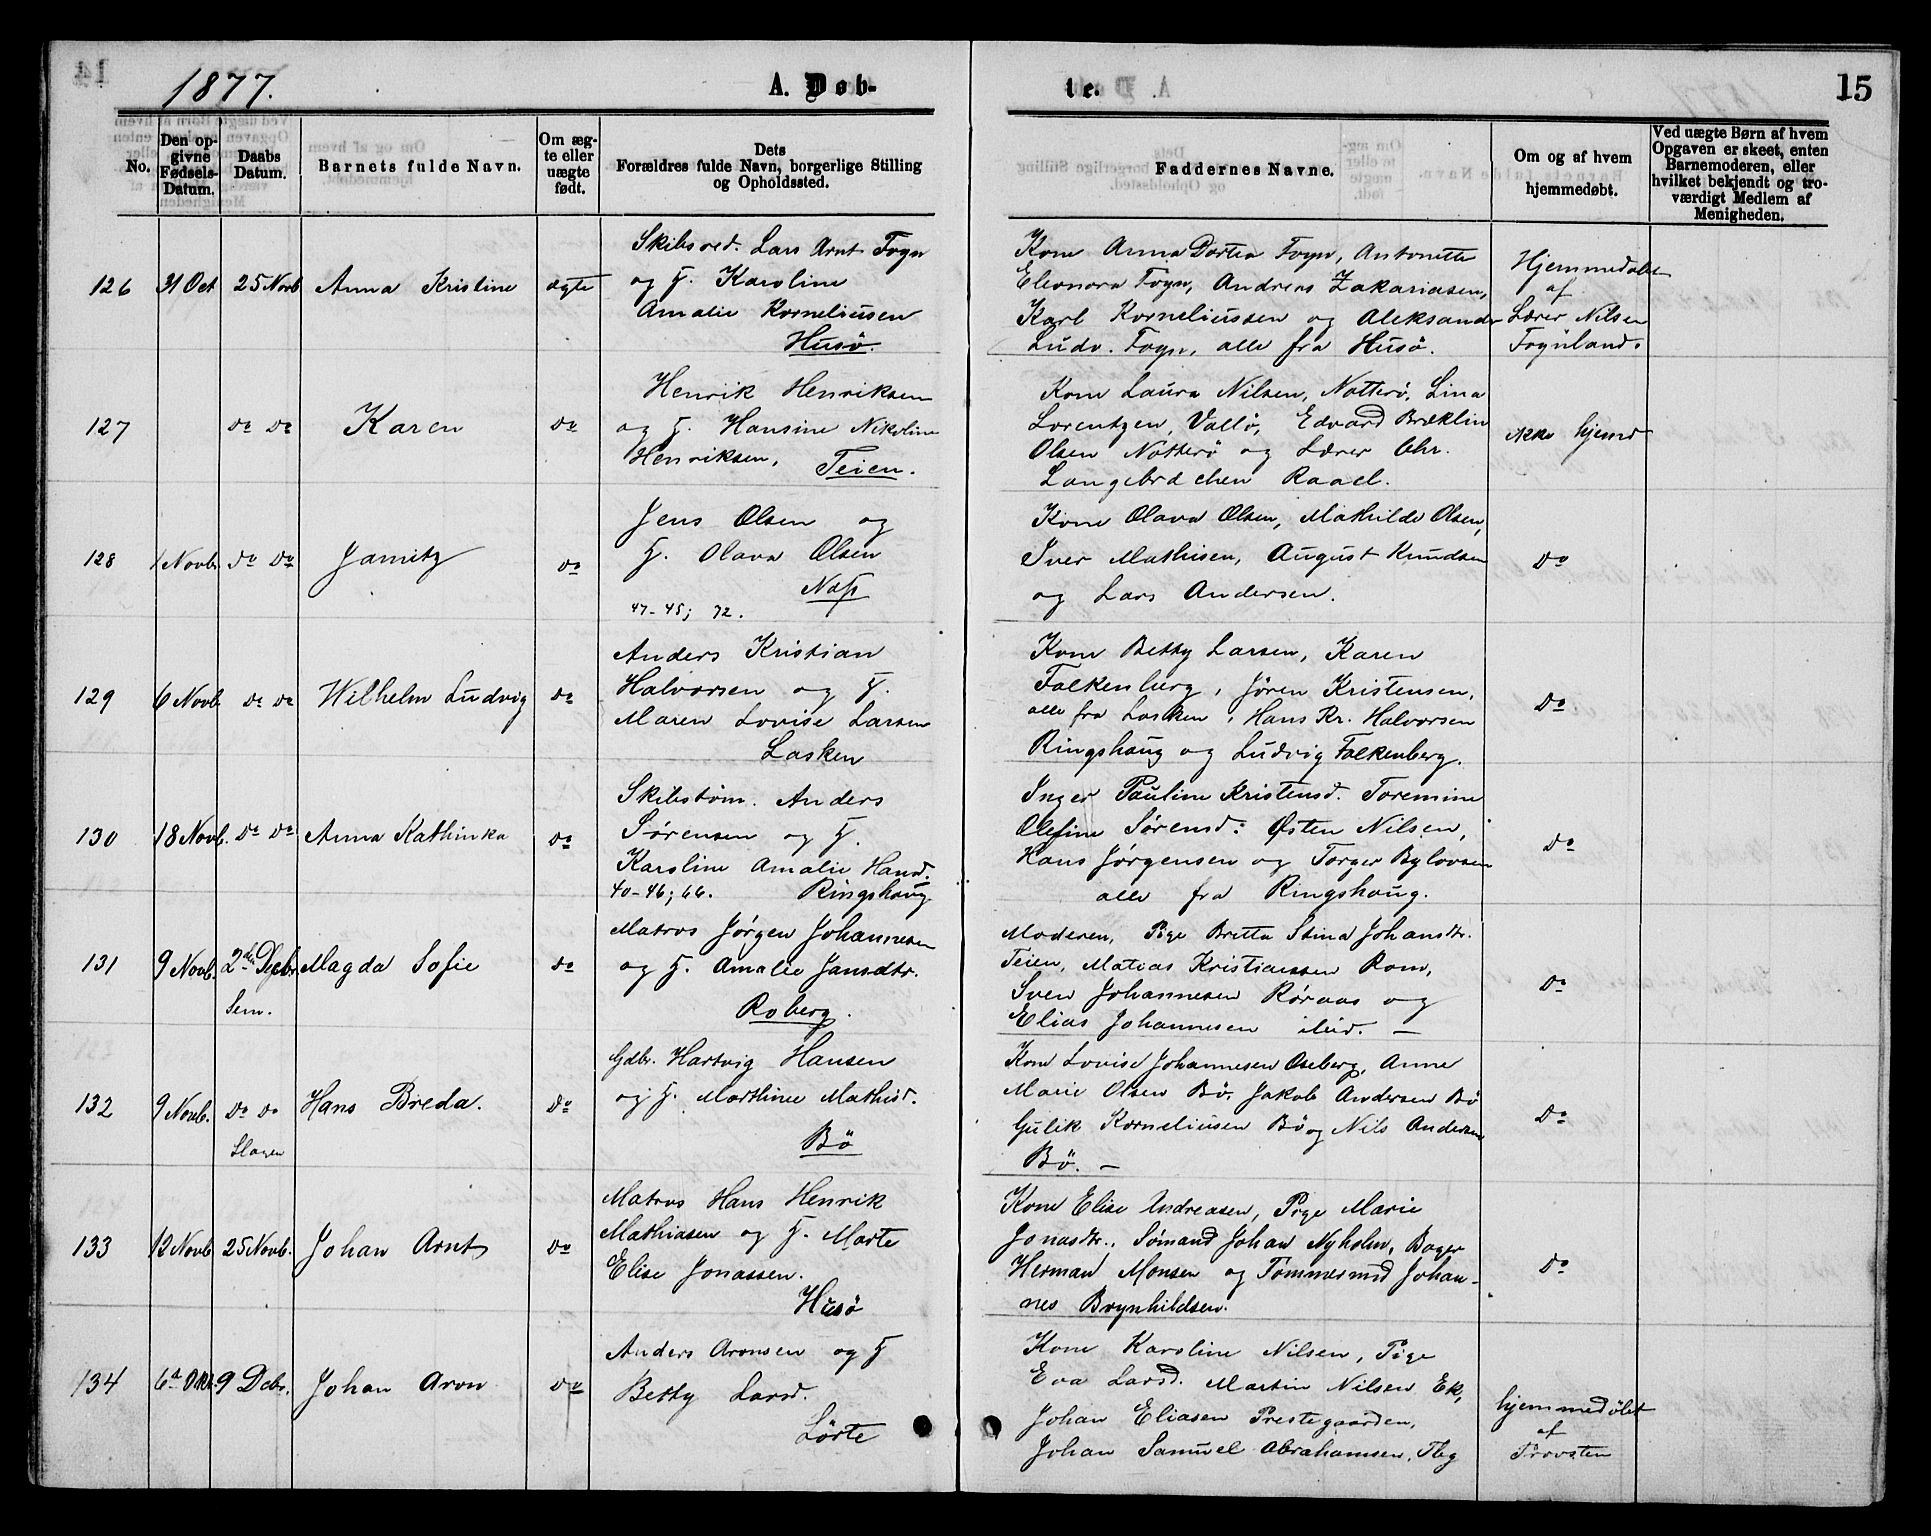 1877.
A. Døb-
te.
15
No.
Den op-
givne
Fødsels-
Datum.
Daabs
Datum.
Barnets fulde Navn.
Om æg-
te eller
uægte
født.
Dets
Forældres fulde Navn, borgerlige Stilling
og Opholdssted.
Faddernes Navne.
Om og af hvem
hjemmedøbt.
Ved uægte Børn af hvem
Opgaven er skeet, enten
Barnemoderen, eller
hvilket bekjendt og tro-
værdigt Medlem af
Menigheden.
126 31 Oct 25 Novb Anna Kristine ægte
Skibsred. Lars Arnt Fogn
og H. Karoline
Amalie Korneliusen
Husö.
Kone Anna Dortea Fogn, Antonette
Eleonora Fogn, Andreas Zakariasen,
Karl Korneliussen og Aleksander
Ludv. Fogn, alle fra Husö.
Hjemmedøbt
af
Lærer Nilsen
Föynland.
127 do do Karen do
Henrik Henriksen
og H. Hansine Nikoline
Henriksen, Teien.
Kone Laura Nilsen, Notterö, Lina
Lorentzen, Vallö, Edvard Bræklin
Olsen Notterö og Lærer Chr.
Langebrechen Raael.
ikke hjemd
128 1 Novb. do do Jamitz do
Jens Olsen og
H. Olava Olsen
Næs
47-45; 72.
Kone Olava Olsen, Mathilde Olsen,
Iver Mathisen, August Knudsen
og Lars Andersen.
do
129 6 Novb do do Wilhelm Ludvig do
Anders Kristian
Halvorsen og H.
Maren Lovise Larsen
Lasken
Kone Betty Larsen, Karen
Falkenberg, Jören Kristensen,
alle fra Lasken, Hans Kr. Halvorsen
Ringshaug og Ludvig Falkenberg.
do
130 18 Novb. do do Anna Kathinka do
Skibstøm. Anders
Sørensen og H.
Karoline Amalie Hansd.
40-46; 66. Ringshoug
Inger Pauline Kristensd. Toremine
Olefine Sørensd: Østen Nilsen,
Hans Jørgensen og Torger Bylovsen
alle fra Ringshoug.
do
131 9 Novb. 2den Decbr. Magda Sofie do
Sem.
Matros Jørgen Johannesen
og H. Amalie Jansdtr.
Roberg.
Moderen, Pige Britta Stina Johansdtr.
Teien, Matias Kristianssen Rom,
Sven Johannesen Röraas og
Elias Johannesen ibid. —
do
132 9 Novb. do do Hans Breda. do
Slagen
Gdbr. Hartvig Hansen
og H. Marthine Mathisd.
Bö
Kone Lovise Johannesen Oseberg, Anne
Marie Olsen Bö, Jakob Andersen Bö
Gulik Korneliusen Bö og Nils Andersen
Bö. —
do
133 12 Novb 25 Novb. Johan Arnt do
Matros Hans Henrik
Mathiasen og H. Marte
Elise Jonassen.
Husö
Kone Elise Andreasen, Pige Marie
Jonasdtr., Sømand Johan Nyholm, Bager
Herman Monsen og Tömmermd Johan-
nes Brynhildsen.
do
134 9 Dcbr. Johan Aron do
Anders Aronsen og H
Betty Larsd.
Lörte
Kone Karoline Nilsen, Pige
Eva Larsd. Martin Nilsen Ek,
Johan Eliasen Prestegaarden,
Johan Samuel Abrahamsen,
hjemmedöbt
af
Provsten